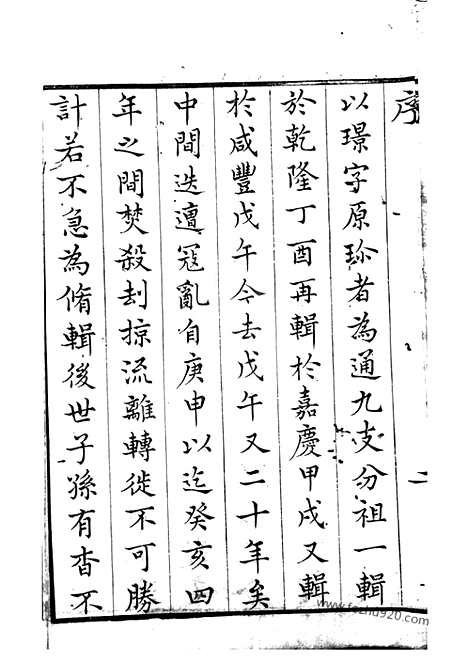 序
二
以璟字原珎者為通九支分祖一輯
於乾隆丁酉再輯於嘉慶甲戌又輯
於咸豐戊午今去戊午又二十年矣
中間迭遭寇亂自庚申以迄癸亥四
年之間焚殺刦掠流離轉徙不可勝
計若不急為脩輯後世子孫有杳不
www.fozhu920.com